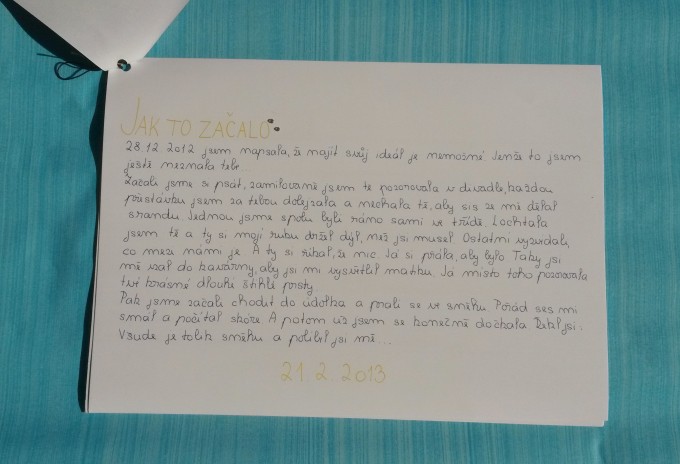 JAK TO ZAČALO:
28.12.2012 jsem napsala, že najít svůj ideál je nemožné. Jenže to jsem
ještě neznala tebe.
Začali jsme si psát, zamilovaně jsem tě pozorovala v divadle, každou
přestávku jsem za tebou dolejzala a nechala tě, aby sis ze mě dělal
srandu. Jednou jsme spolu byli ráno sami ve třídě. Lochtala
jsem tě a ty si moji ruku držel dýl, než jsi musel. Ostatní vyzvídali,
co mezi námi je. A ty si říkal, že nic. Já si přála, aby bylo. Taky jsi
mě vzal do kavárny, aby jsi mi vysvětlil matiku. Já místo toho pozorovala
tvé krásné dlouhé štíhlé prsty.
Pak jsme začali chodit do údolka a prali se ve sněhu. Pořád ses mi
smál a počítal skóre. A potom už jsem se konečně dočkala. Řekl jsi:
Všude je tolik sněhu a políbil jsi mě...
21.2.2013